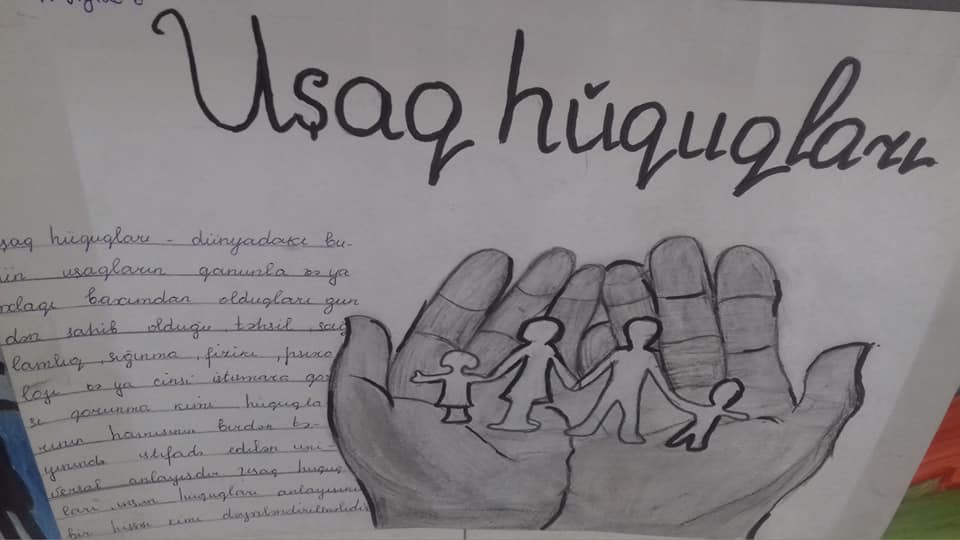 Uşaq hüquqları
şaq hüquqları - dünyadakı bü-
ün uşaqların qanunla və ya
xlaqi baxımdan olduqları gün
dən sahib olduğu, təhsil, sağ
lamlıq, sığınma, fiziki, psixo
loji və ya cinsi istismara qar
şı qorunma kimi hüquqla
rının hamısının birdən tə-
yinində istifadə edilən uni
versal anlayışdır. Uşaq hüquq
ları insan hüquqları anlayışının
bir hissəsi kimi dəyərləndirilməlidir